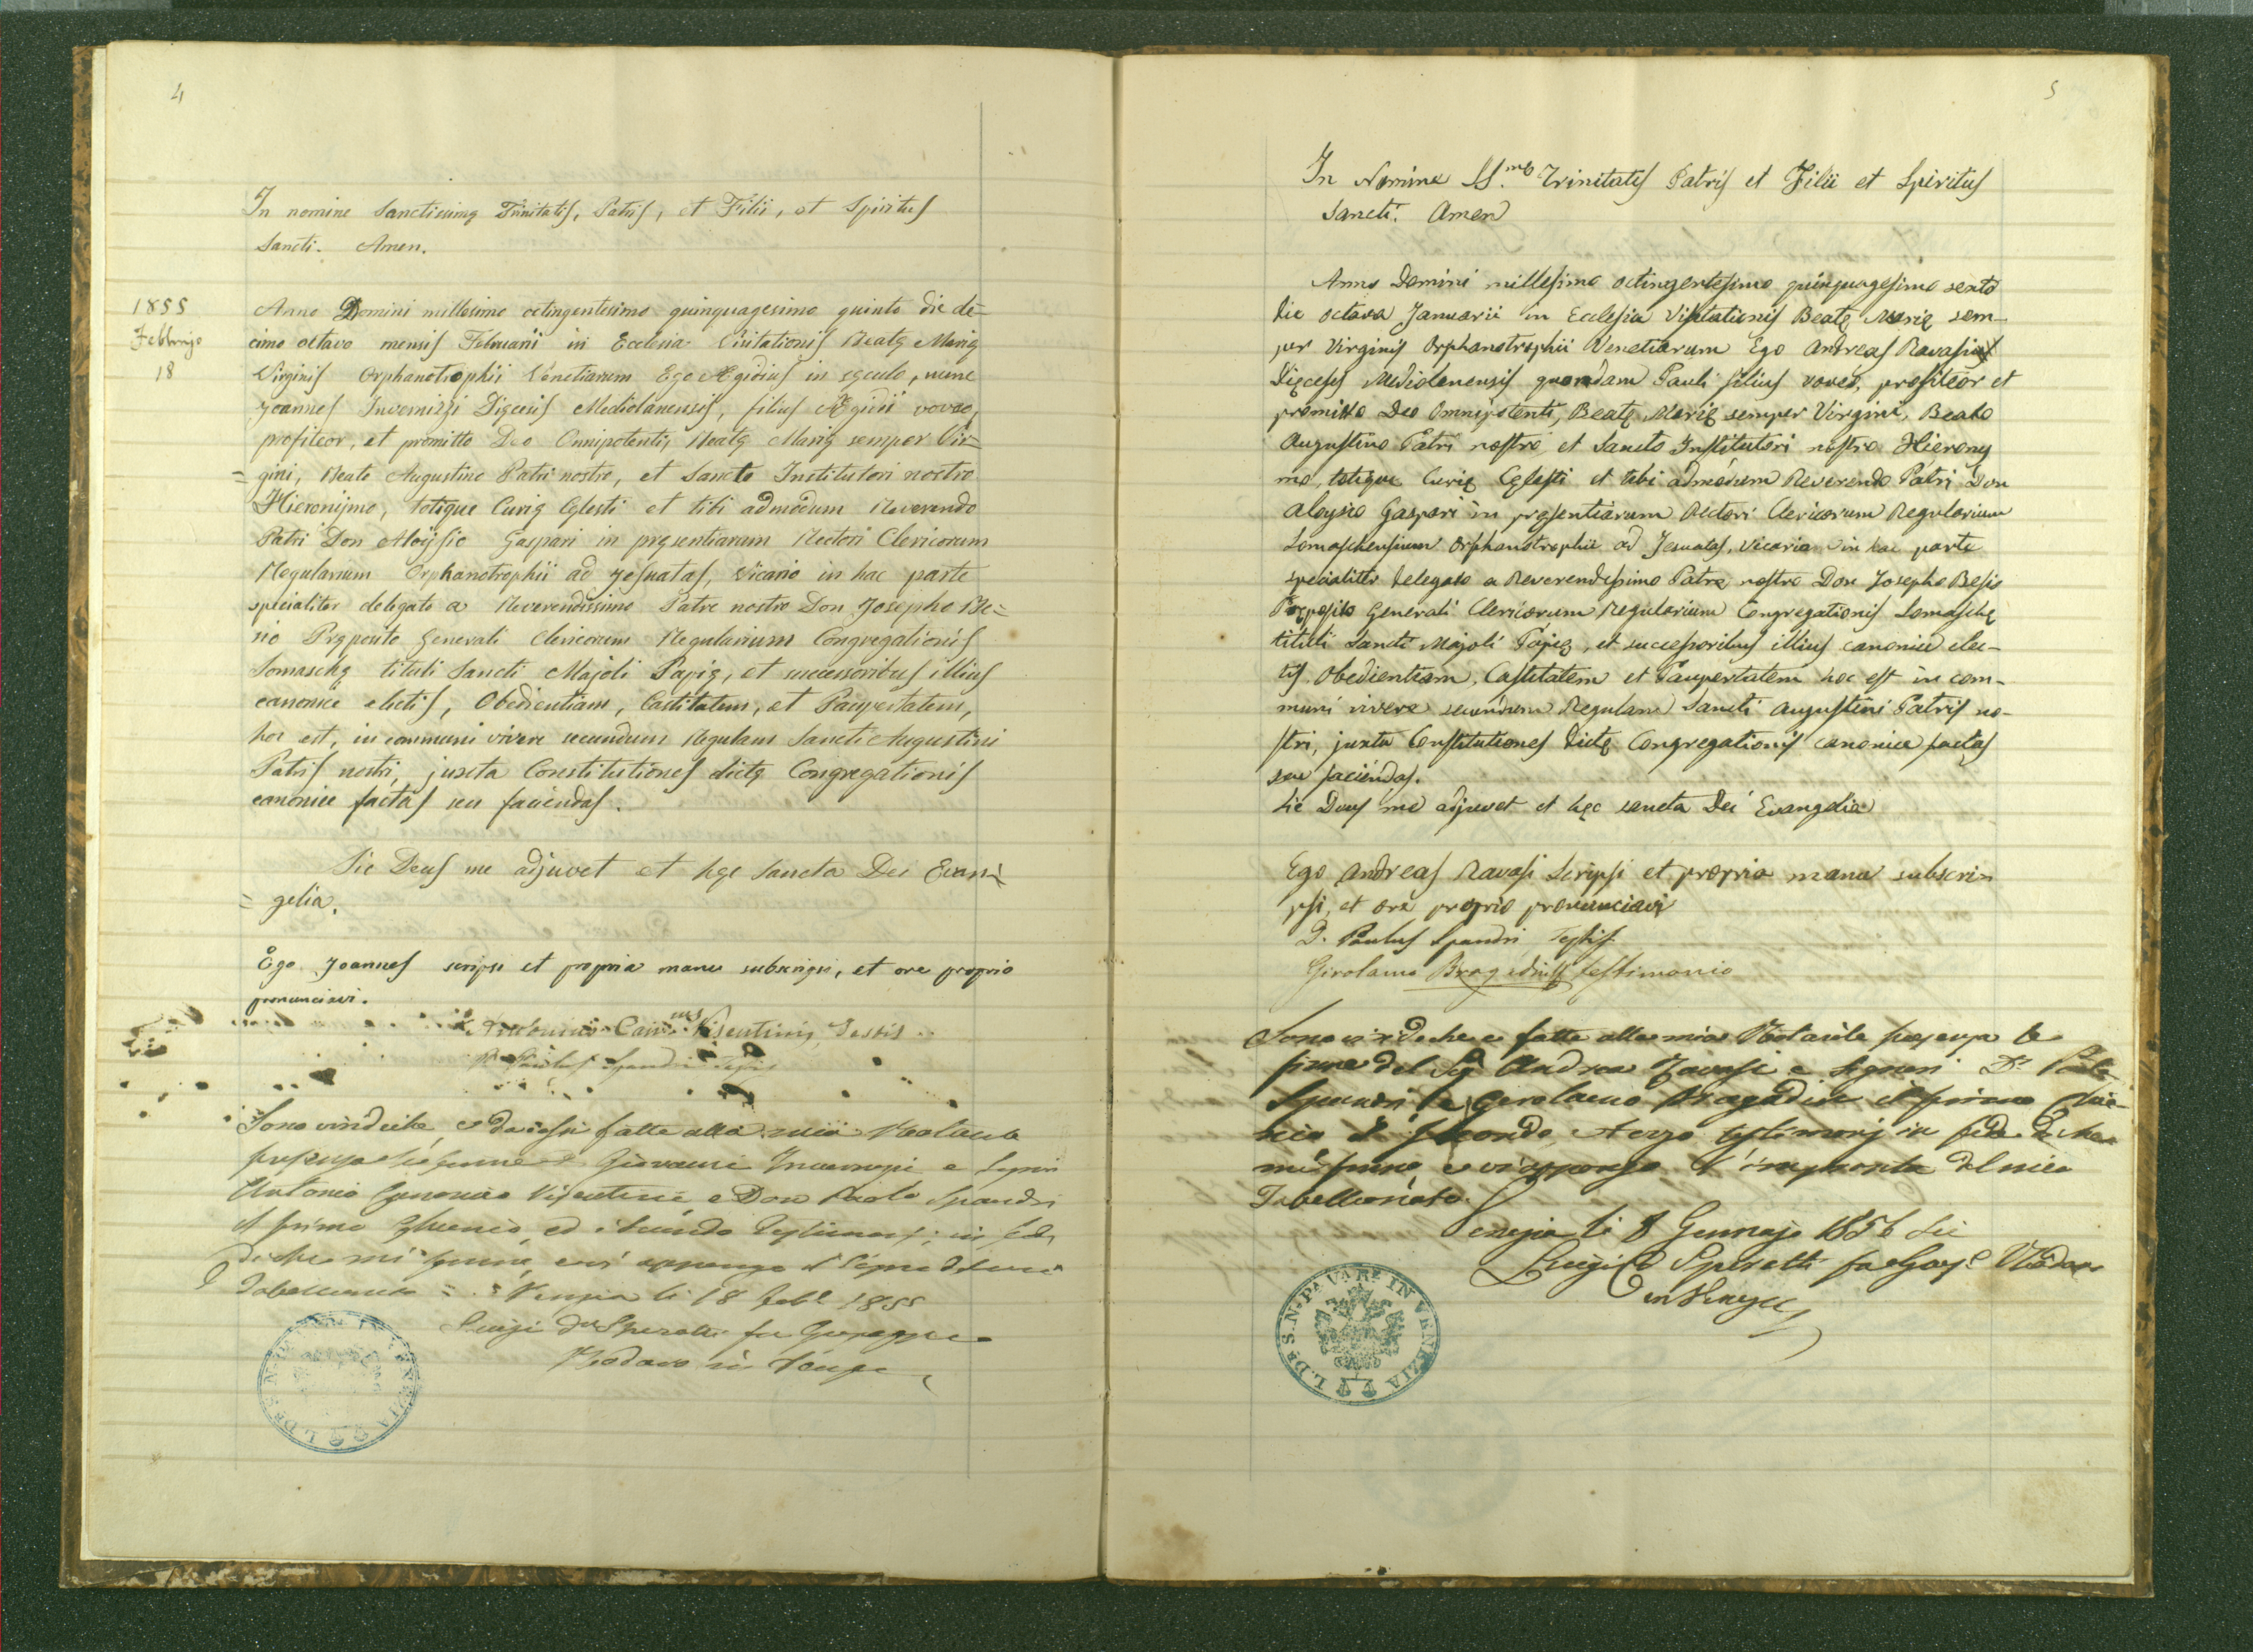 4
In nomine Sanctissimę Trinitatis, Patris, et Filii, et Spiritus
Sancti. Amen.
1855
Febbrajo
18
Anno Domini millesimo octingentesimo quinquagesimo quinto die de-
cimo octavo mensis Februarii in Ecclesia Visitationis Beatę Marię
Virginis Orphanotrophii Venetiarum Ego Ægidius in sęculo, nunc
Joannes Invernizzi Dięcesis Mediolanensis, filius Ægidii voveo,
profiteor, et promitto Deo Omnipotenti, Beatę Marię semper Vir=
=gini, Beato Augustino Patri nostro, et Sancto Institutori nostro
Hieronijmo, totique Curię Cęlesti et tibi admodum Reverendo
Patri Don Aloijsio Gaspari in pręsentiarum Rectori Clericorum
Regularium Orphanotrophii ad Jesuatas, Vicario in hac parte
specialiter delegato a Reverendissimo Patre nostro Don Josepho Be=
sio Pręposito Generali Clericorum Regularium Congregationis
Somaschę tituli Sancti Majoli Papię, et successoribus illius
canonice electis, Obedientiam, Castitatem, et Paupertatem,
hoc est, in communi vivere secundum Regulam Sancti Augustini
Patris nostri, juxta Constitutiones dictę Congregationis
canonice factas seu faciendas.
Sic Deus me adjuvet et hęc Sancta Dei Evan=
=gelia.
Ego Joannes scripsi et propria manu subscripsi, et ore proprio
pronunciavi.
Antonius Can.cus Visentini, Testis
P. Paulus Spandri Testis
Sono vindiche, e da essi fatte alla mia Notarile
presenza le firme Giovanni Invernizzi e Signori
Antonio Canonico Visentini e Don Paolo Spandri
il primo ed i secondo Testimonj; in fede
di che mi firmo, e vi appongo il Segno del mio
Tabellionato = Venezia li 18 Febb. 1855
Luigi Dr Speratti fu Giuseppe
Notaro in Venezia
5
In Nomine SS.mę Trinitatis Patris et Filii et Spiritus
Sancti. Amen
Anno Domini millesimo octingentesimo quinquagesimo sexto
die octava Januarii in Ecclesia Visitationis Beatę Marię sem-
per Virginis Orphanotrophii Venetiarum Ego Andreas Ravasi
Dięcesis Mediolanensis quondam Pauli filius voveo, profiteor et
promitto Deo Omnipotenti, Beatę Marię semper Virgini, Beato
Augustino Patri nostro et Sancto Institutori nostro Hierony
mo, totique Curię Cęlesti et tibi admodum Reverendo Patri Don
Aloysio Gaspari in presentiarum Rectori Clericorum Regularium
Somaschensium Orphanotrophii ad Jesuatas, Vicario in hac parte
specialitr delegato a Reverendissimo Patre nostro Don Josepho Besio
Pręposito Generali Clericorum Regularium Congregationis Somaschę
tituli Sancti Majoli Papię, et successoribus illius canonice elec-
tis Obedientiam, Castitatem et Paupertatem hoc est in com-
muni vivere secundum Regulam Sancti Augustini Patris no-
stri, juxta Constitutiones dictę Congregationis canonice factas
seu faciendas.
Sic Deus me adjuvet et hęc sancta Dei Evangelia
Ego Andreas Ravasi scripsi et propria manu subscri-
psi, et ore proprio pronunciavi
D. Paulus Spandri Testis
Girolamo Bragadin testimonio
Sono vindiche e fatte alla mia Notarile presenza le
firme del Sig. Andrea Ravasi e Signori Dn Paolo
Spandri e Girolamo Bragadin il primo
il secondo, e terzo testimonj in fede di che
mi firmo, e vi appongo l'impronta del mio
Tabellionato.
Venezia li 8 Gennajo 1856 sei
Luigi Dr Speratti fu Gius.e Notaro
in Venezia
L. DR S. N. PA VARE IN VENEZIA